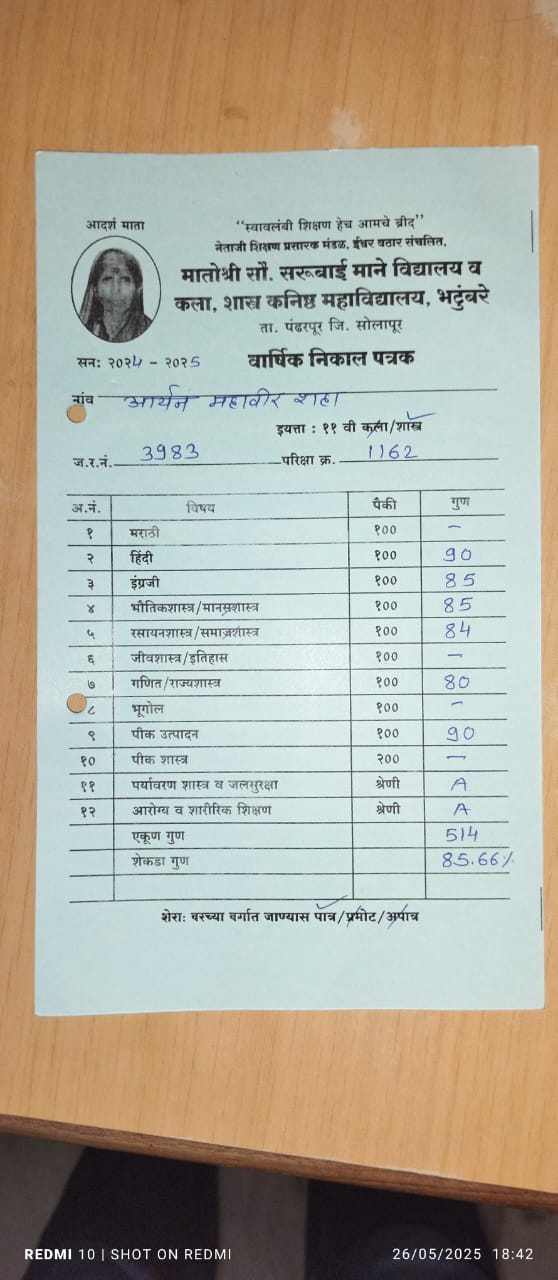 आदर्श माता
"स्वावलंबी शिक्षण हेच आमचे ब्रीद"
नेताजी शिक्षण प्रसारक मंडळ, ईश्वर वठार संचलित,
मातोश्री सौ. सरूबाई माने विद्यालय व
कला, शास्त्र कनिष्ठ महाविद्यालय, भटुंबरे
ता. पंढरपूर जि. सोलापूर
सन: २०२4 - २०२5 वार्षिक निकाल पत्रक
नांव आर्यन महावीर शहा
इयत्ता : ११ वी कला/शास्त्र
ज.र.नं. 3983 परिक्षा क्र. 1162
अ.नं. विषय पैकी गुण
१ मराठी १०० -
२ हिंदी १०० 90
३ इंग्रजी १०० 85
४ भौतिकशास्त्र/मानसशास्त्र १०० 85
५ रसायनशास्त्र/समाजशास्त्र १०० 84
६ जीवशास्त्र/इतिहास १०० -
७ गणित/राज्यशास्त्र १०० 80
८ भूगोल १०० -
९ पीक उत्पादन १०० 90
१० पीक शास्त्र २०० -
११ पर्यावरण शास्त्र व जलसुरक्षा श्रेणी A
१२ आरोग्य व शारीरिक शिक्षण श्रेणी A
एकूण गुण 514
शेकडा गुण 85.66%
शेरा: वरच्या वर्गात जाण्यास पात्र/प्रमोट/अपात्र
REDMI 10 | SHOT ON REDMI 26/05/2025 18:42